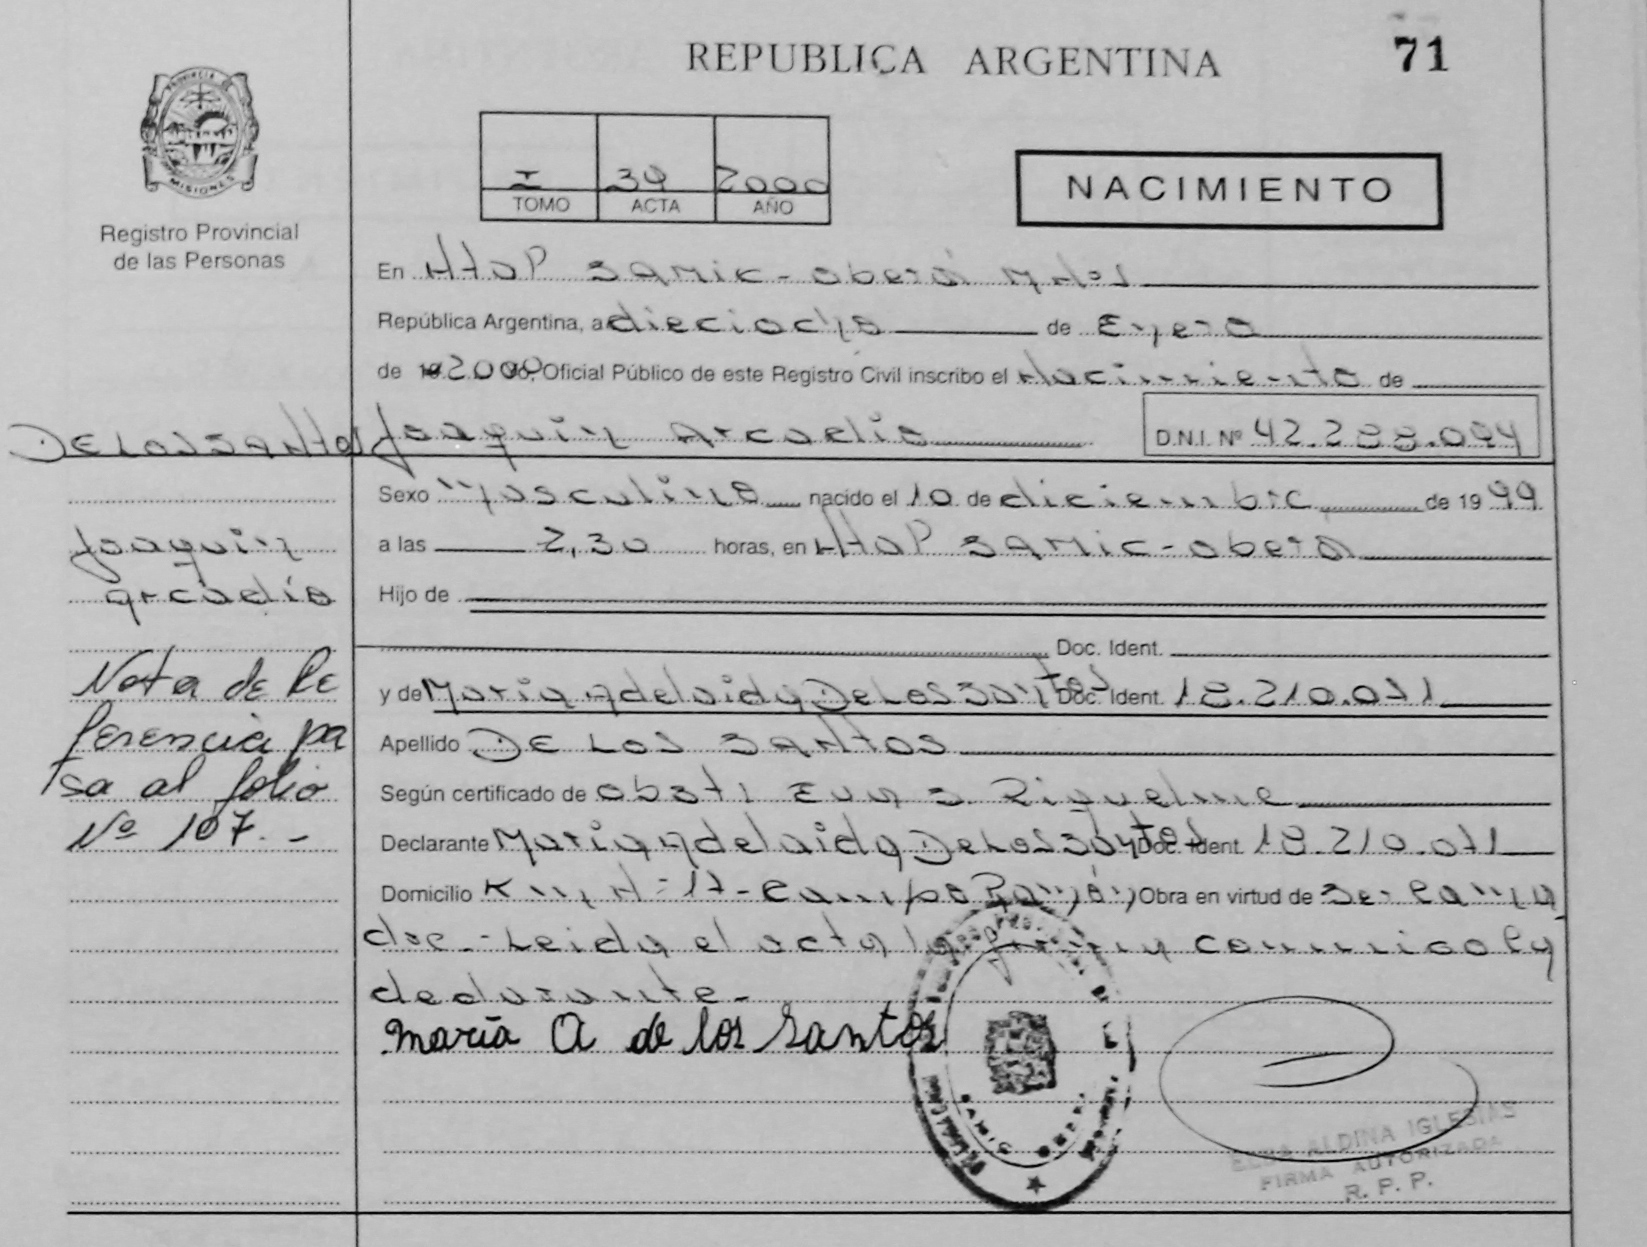 REPUBLICA ARGENTINA
71
PROVINCIA DE
MISIONES
Registro Provincial
de las Personas
I 34 2000
TOMO ACTA AÑO
NACIMIENTO
En Htop SAMIC - oberá Mnes
República Argentina, a dieciocho de Enero
de 2000 yo, Oficial Público de este Registro Civil inscribo el Nacimiento de
DE LOS SANTOS Joaquin Arcadio D.N.I. Nº 42.288.094
Sexo Masculino nacido el 10 de diciembre de 1999
Joaquin
a las 2,30 horas, en Htop SAMIC - oberá
Arcadio
Hijo de
Doc. Ident.
Nota de Re
y de Maria Adelaida De Los Santos Doc. Ident. 18.210.071
ferencia pa
Apellido DE LOS SANTOS
sa al folio
Según certificado de obst. Eva S. Riquelme
Nº 107. -
Declarante Maria Adelaida De Los Santos Doc. Ident. 18.210.071
Domicilio Km Nº 17 - Campo Ramón, Obra en virtud de Ser la ma
dre. - Leida el acta la firma conmigo la
declarante -
maría A de los santos
ELBA ALDINA IGLESIAS
FIRMA AUTORIZADA
R. P. P.